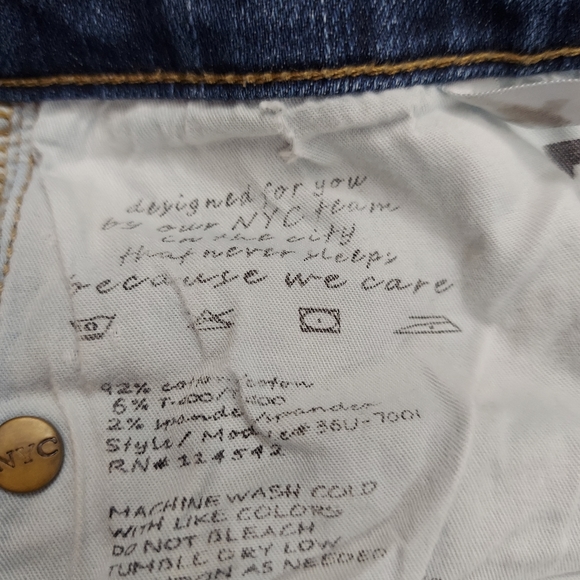 designed for you
by our NYC team
in the city
that never sleeps
because we care
92% cotton/coton
6% T-400/T-400
2% spandex/spandex
Style/Modele# 36U-7001
RN# 124542
NYC
MACHINE WASH COLD
WITH LIKE COLORS
DO NOT BLEACH
TUMBLE DRY LOW
IRON AS NEEDED